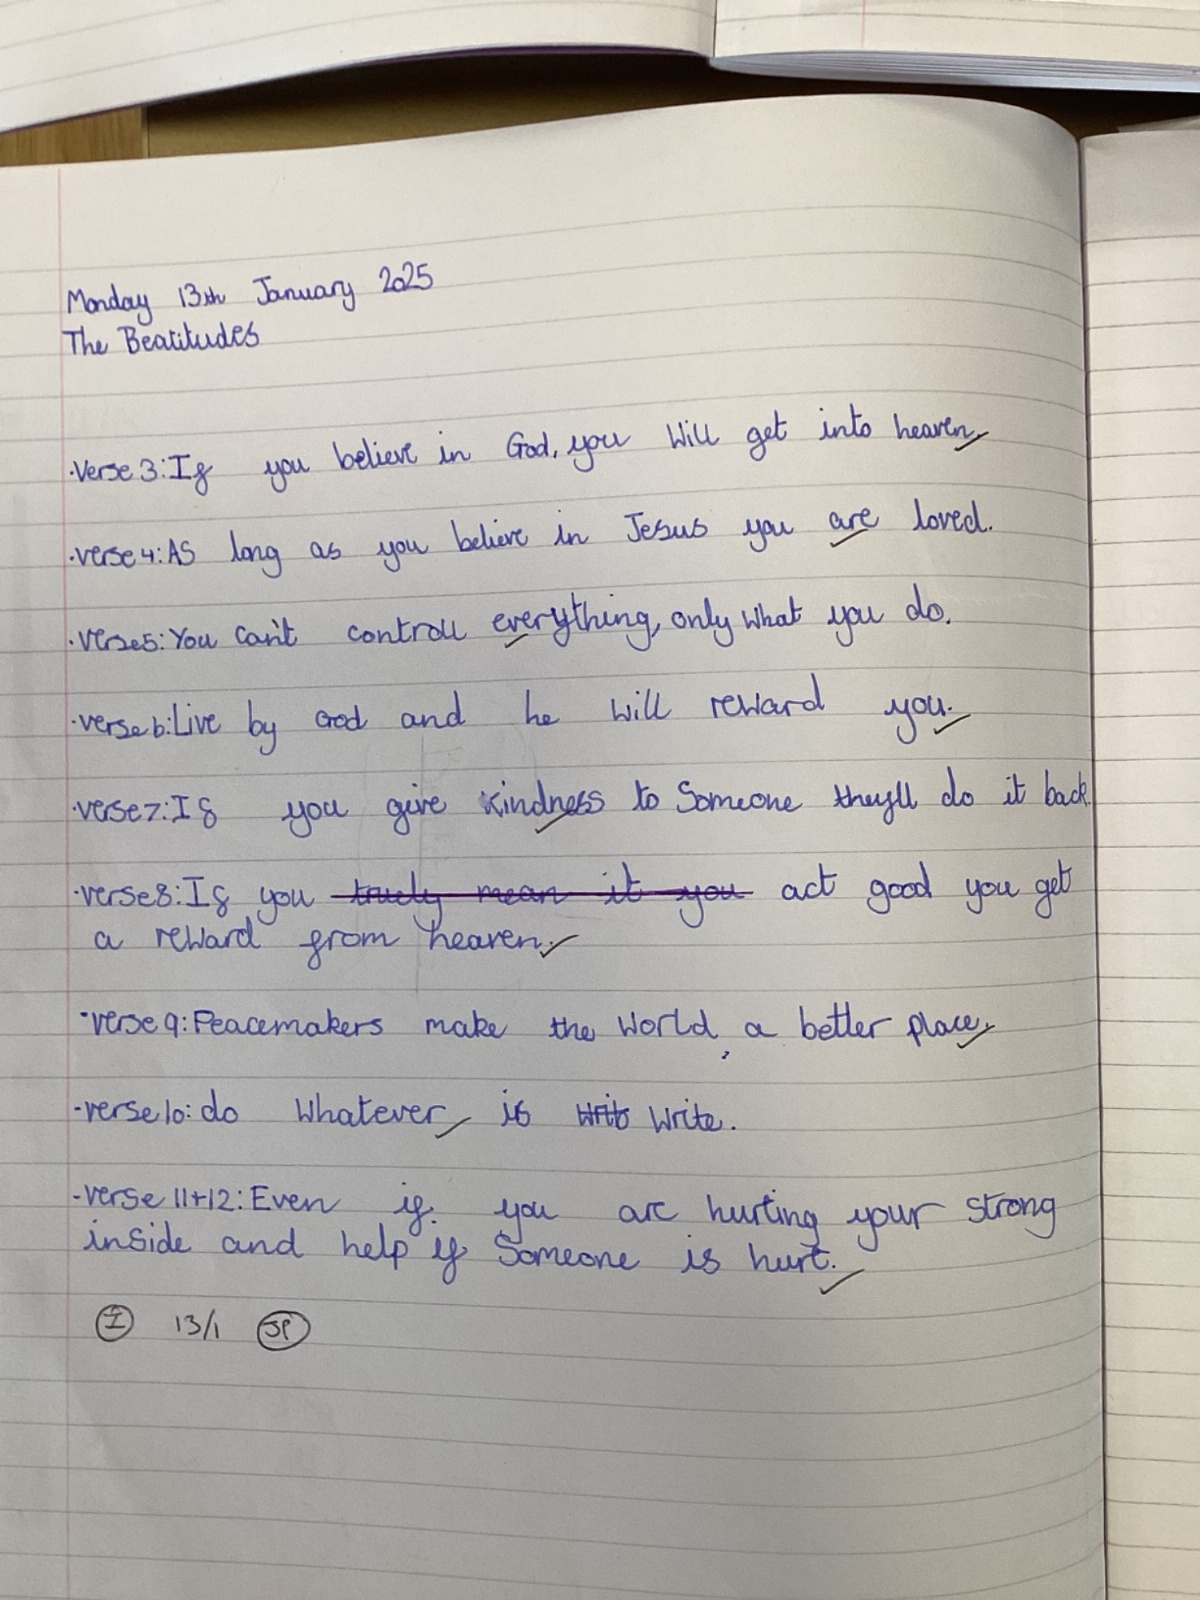 Monday 13th January 2025
The Beatitudes
·Verse 3: If you believe in God, you will get into heaven.
·verse 4: As long as you believe in Jesus you are loved.
·verse5: You can't controll everything, only what you do.
·verse 6: Live by God and he will reward you.
·verse7: If you give kindness to someone they'll do it back.
·verse8: If you truely mean it you act good you get
a reward from heaven.
·verse 9: Peacemakers make the world, a better place.
·verse 10: do whatever is write.
·verse 11+12: Even if you are hurting your strong
inside and help if someone is hurt.
I 13/1 SP